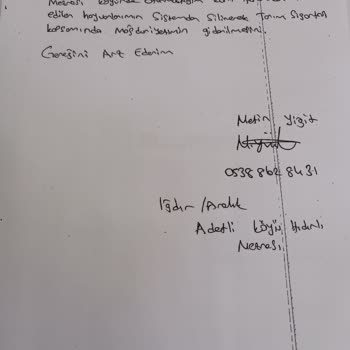 Mezrası köyünde
edilen hayvanlarımın Sistemden Silinerek Tarım Sigortası
kapsamında Mağduriyetimin giderilmesini.
Gereğini Arz Ederim
Metin Yiğit
0538 862 8431
Iğdır / Aralık
Adetli köyü Hıdırlı
Mezrası